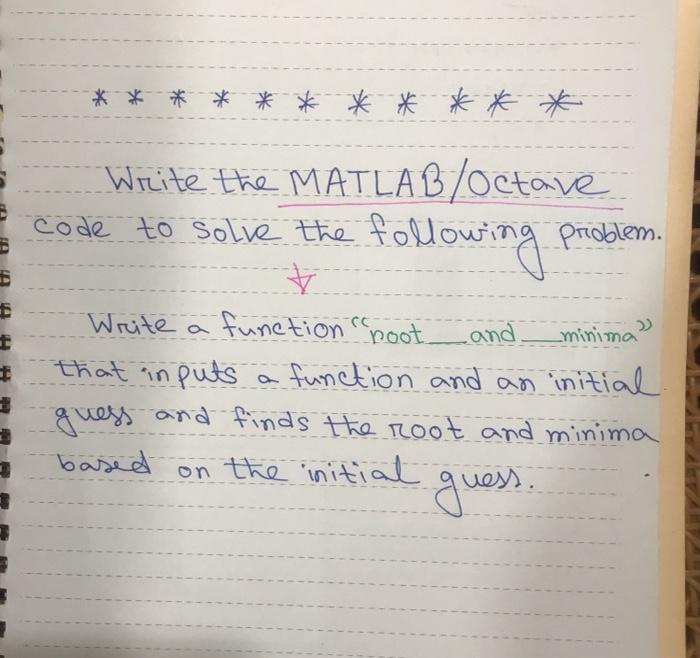 * * * * * * * * * * *
Write the MATLAB/Octave
code to solve the following problem.
Write a function "root_and_minima"
that inputs a function and an initial
guess and finds the root and minima
based on the initial guess.